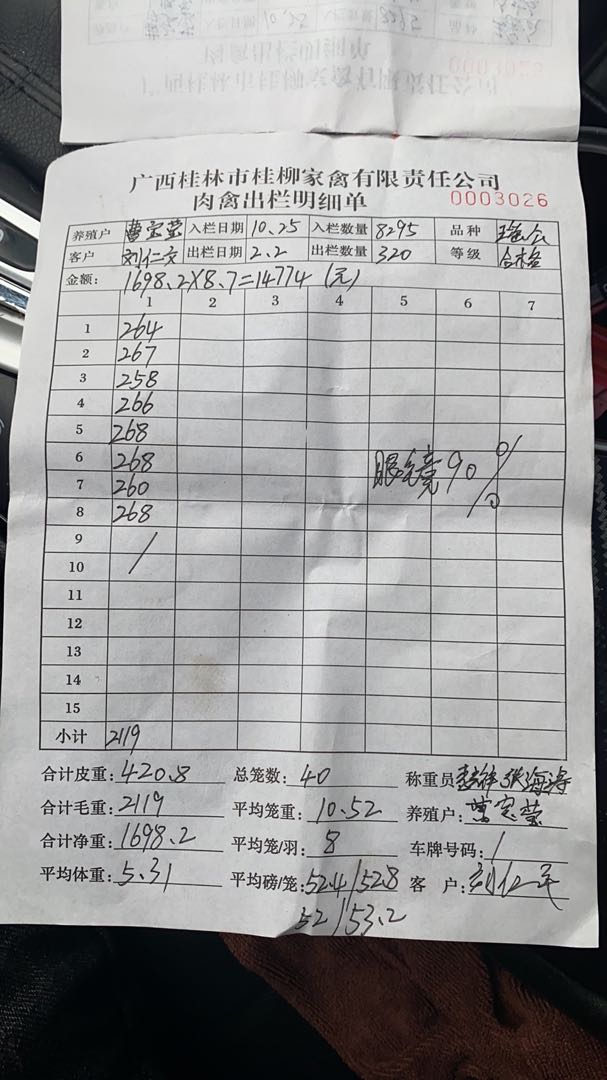 0003025
广西桂林市桂柳家禽有限责任公司
肉禽出栏明细单 0003026
养殖户 入栏日期 10.25 入栏数量 8295 品种
客户 出栏日期 2.2 出栏数量 320 等级 合格
金额: 1698.2×8.7=14774 (元)
1 2 3 4 5 6 7
1 264
2 267
3 258
4 266
5 268
6 268
7 260
8 268
眼镜90%
9
10
11
12
13
14
15
小计 2119
合计皮重: 420.8 总笼数: 40 称重员 张海涛
合计毛重: 2119 平均笼重: 10.52 养殖户:
合计净重: 1698.2 平均笼/羽: 8 车牌号码: /
平均体重: 5.31 平均磅/笼: 52.4/52.8 客户:
52/53.2